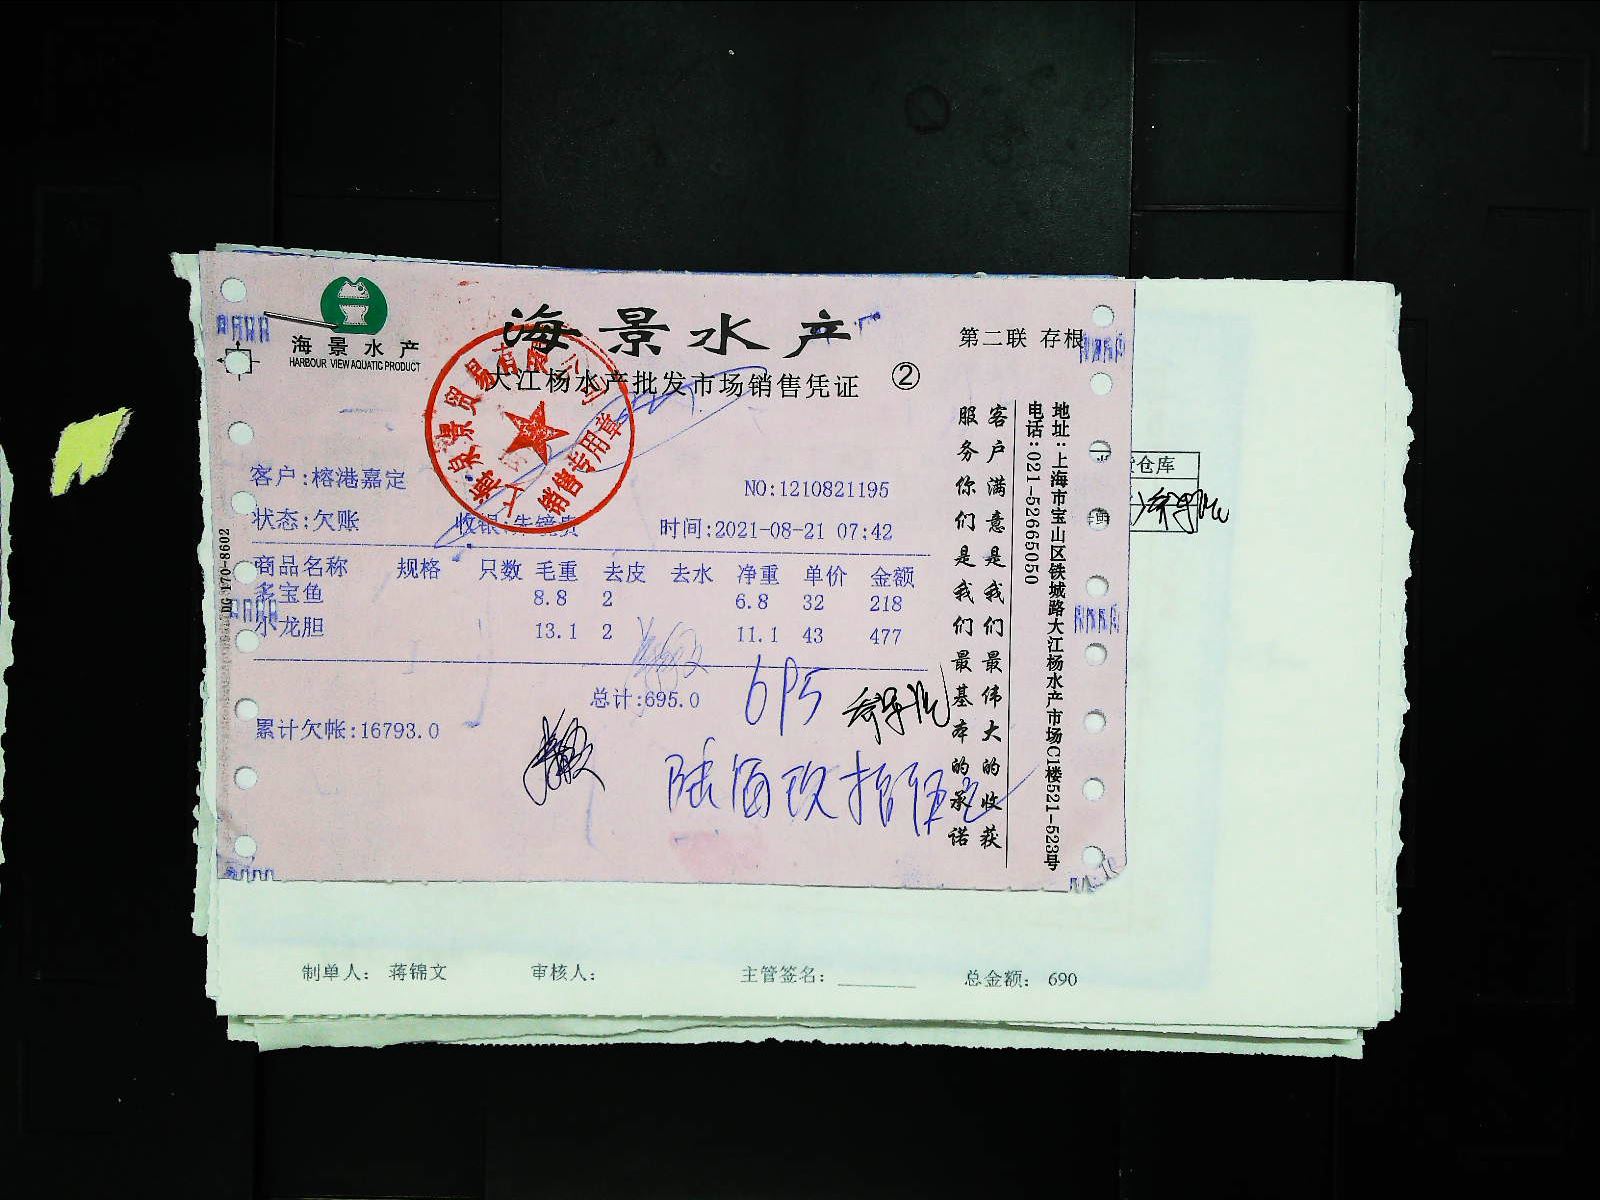 海景水产
HARBOUR VIEW AQUATIC PRODUCT
海景水产
大江杨水产批发市场销售凭证 ②
第二联 存根
上海泉景贸易有限公司
销售专用章
客户:榕港嘉定
NO:1210821195
状态:欠账 收银:朱镜贵 时间:2021-08-21 07:42
商品名称 规格 只数 毛重 去皮 去水 净重 单价 金额
多宝鱼 8.8 2 6.8 32 218
小龙胆 13.1 2 11.1 43 477
总计:695.0
695
累计欠帐:16793.0
陆佰玖拾伍元
客户满意是我们最伟大的收获
服务你们是我们最基本的承诺
地址:上海市宝山区铁城路大江杨水产市场C1楼521-523号
电话:021-52665050
仓库
制单人: 蒋锦文 审核人: 主管签名: 总金额: 690